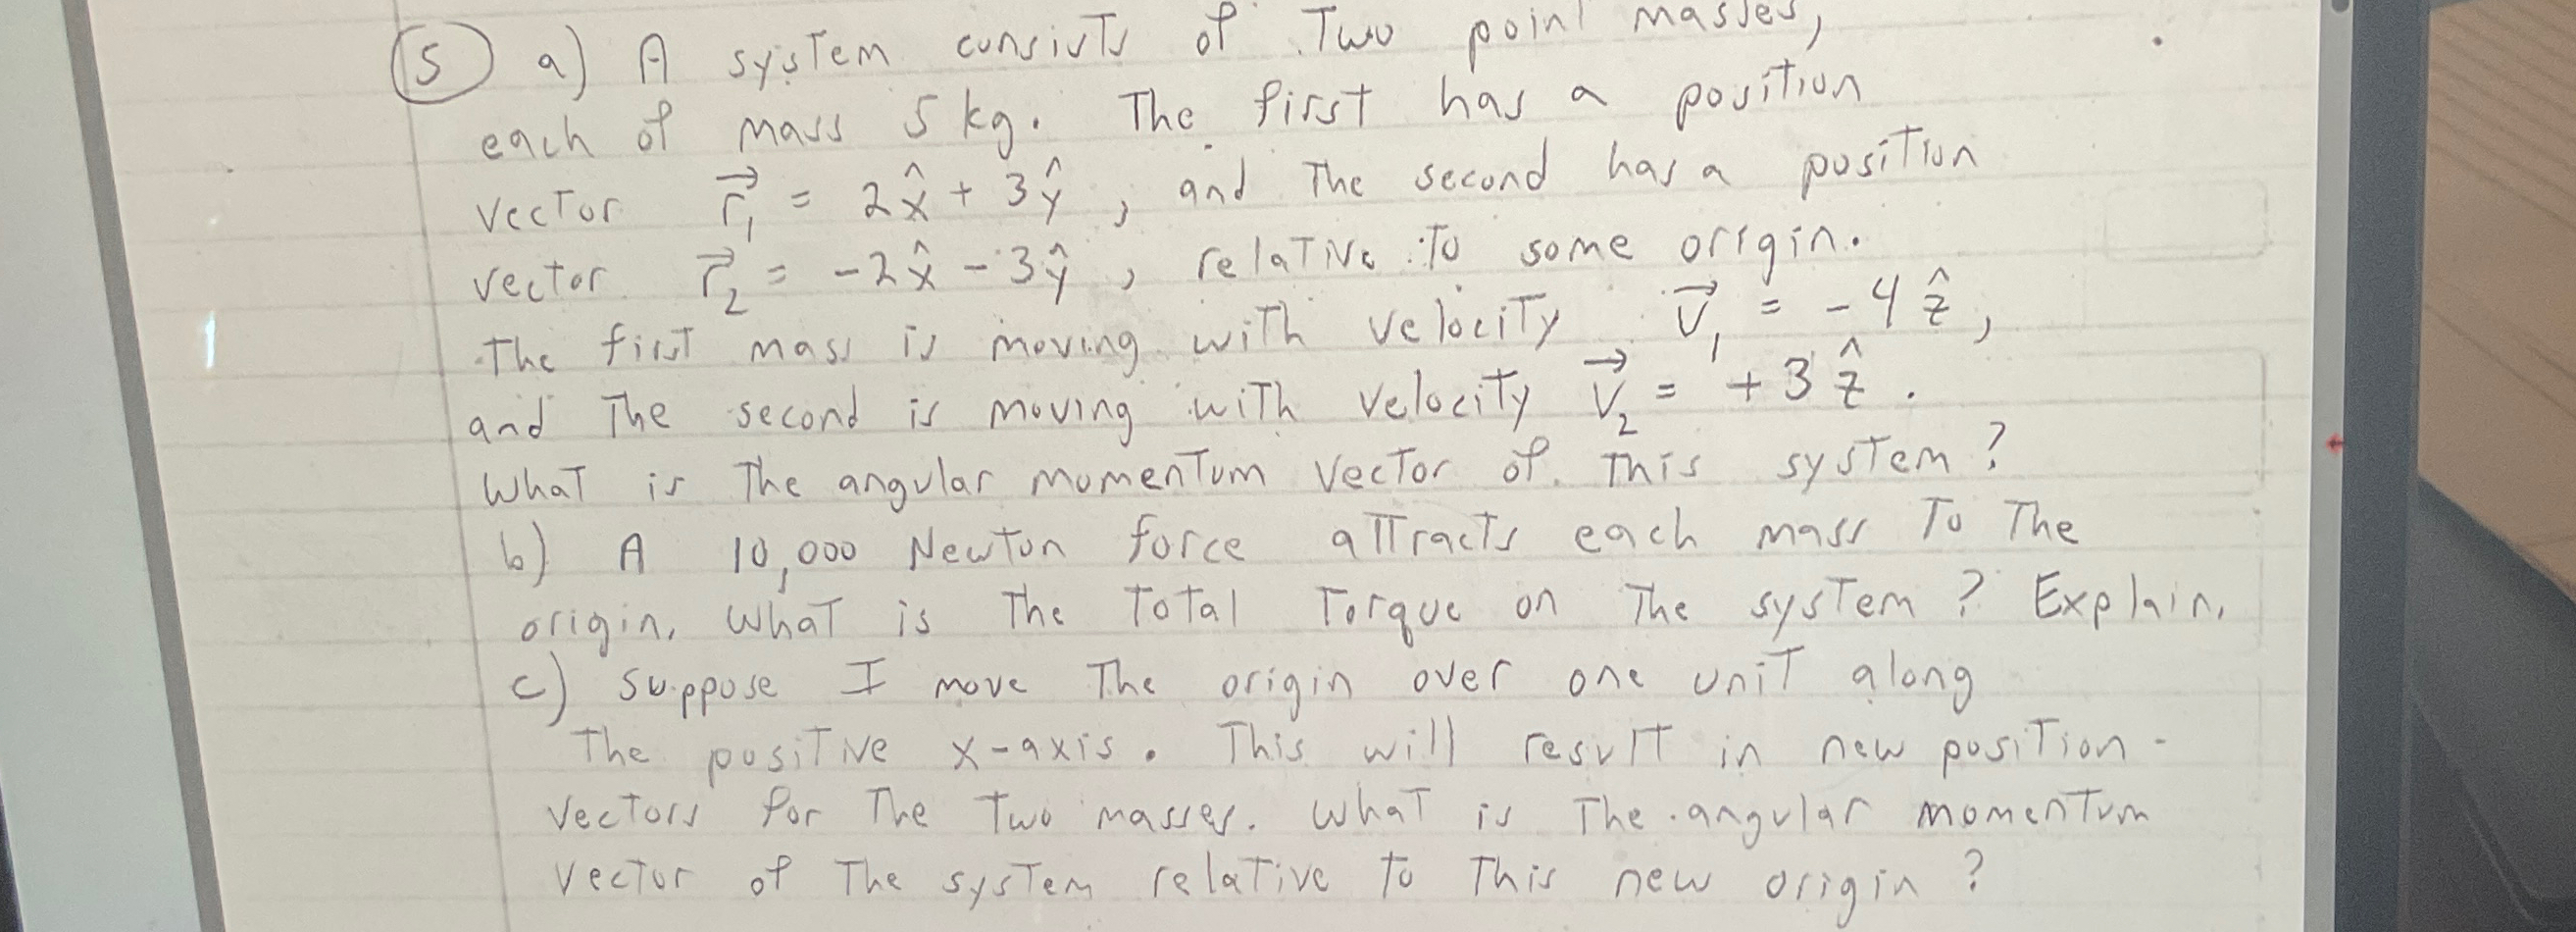 (5) a) A system consists of two point masses,
each of mass 5 kg. The first has a position
vector r⃗₁ = 2x̂ + 3ŷ, and the second has a position
vector r⃗₂ = -2x̂ - 3ŷ, relative to some origin.
The first mass is moving with velocity v⃗₁ = -4ẑ,
and the second is moving with velocity v⃗₂ = +3ẑ.
What is the angular momentum vector of this system?
b) A 10,000 Newton force attracts each mass to the
origin. What is the total torque on the system? Explain.
c) Suppose I move the origin over one unit along
the positive x-axis. This will result in new position-
vectors for the two masses. What is the angular momentum
vector of the system relative to this new origin?